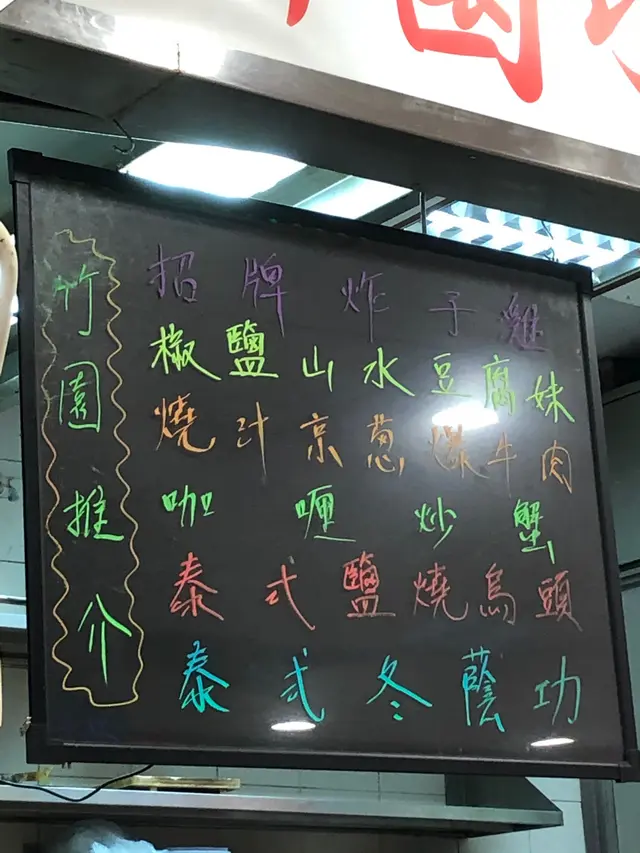 竹園推介
招牌炸子雞
椒鹽山水豆腐妹
燒汁京葱爆牛肉
咖喱炒蟹
泰式鹽燒烏頭
泰式冬蔭功